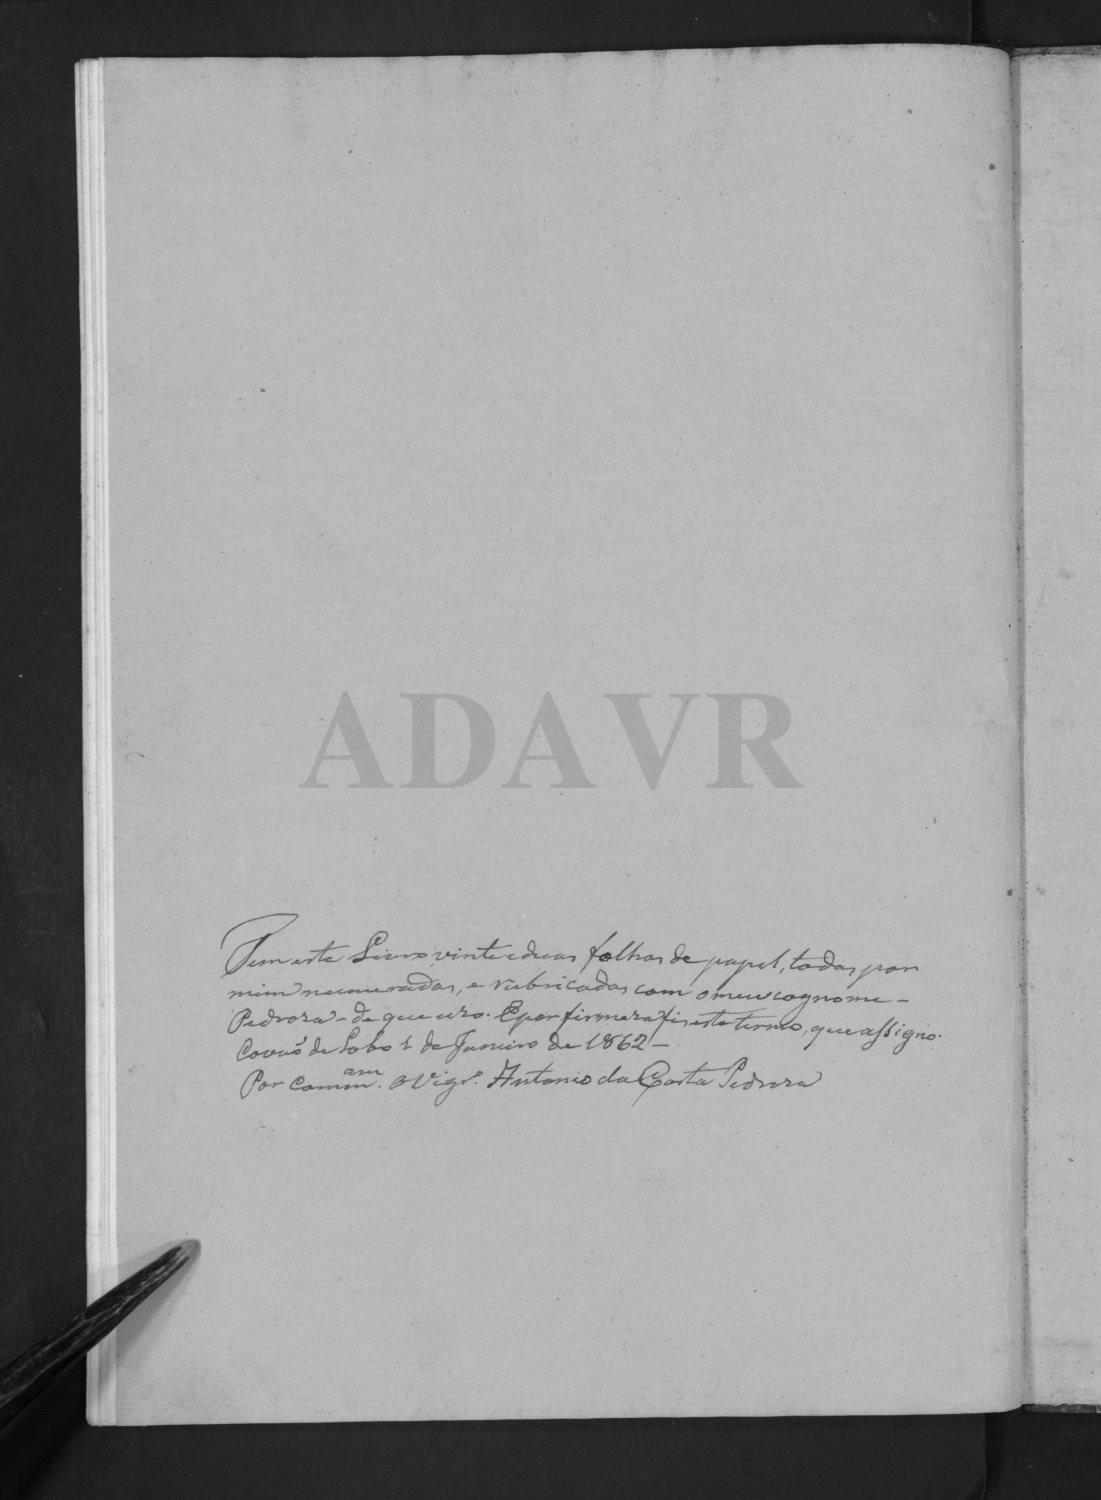 ADAVR
Tem este Livro vinte e duas folhas de papel, todas por
mim numeradas, e rubricadas com o meu cognome -
Pedroza - de que uzo. E por firmeza fis este termo, que assigno.
Covaõ de Lobo 1 de Janeiro de 1862 -
Por Comm.am O Vigr.º Antonio da Costa Pedroza